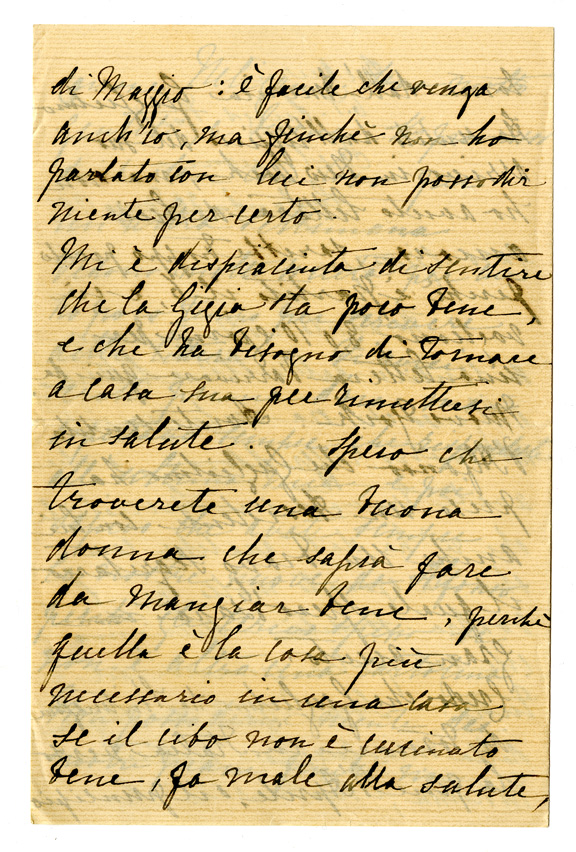 di Maggio : è facile che venga
anch'io, ma finchè non ho
parlato con lui non posso dir
niente per certo.
Mi è dispiaciuta di sentire
che la Gigia sta poco bene,
e che ha bisogno di tornare
a casa sua per rimettersi
in salute. Spero che
troverete una buona
donna che saprà fare
da mangiar bene, perchè
quella è la cosa più
necessario in una casa
se il cibo non è cucinato
bene, fa male alla salute,